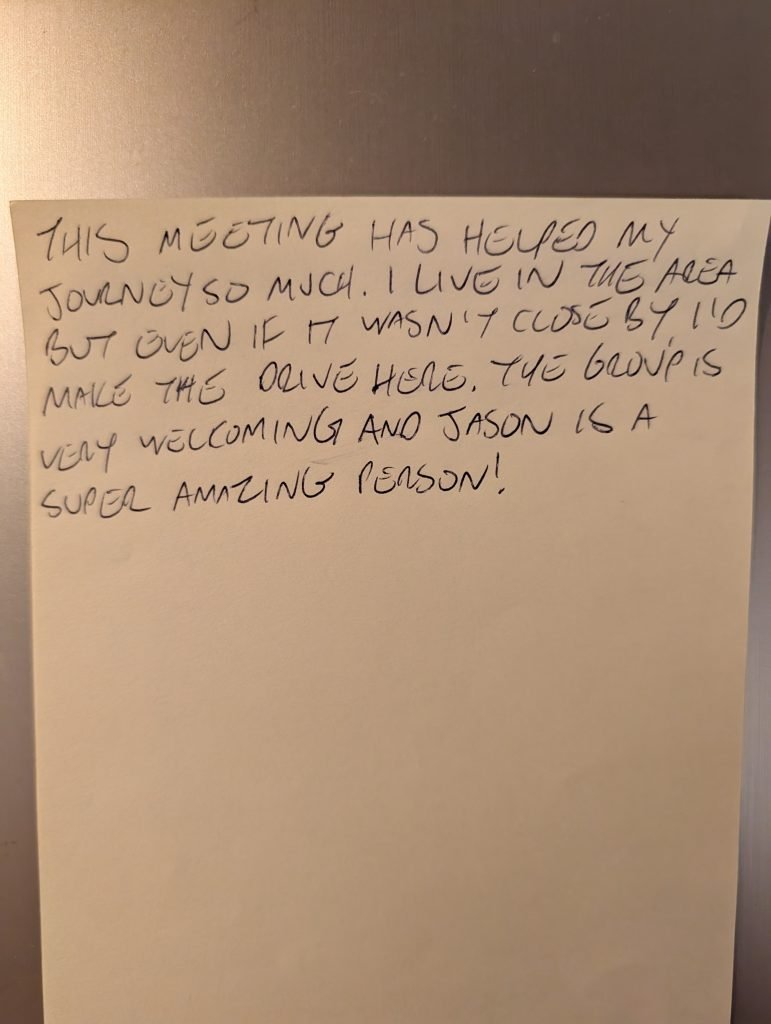 THIS MEETING HAS HELPED MY
JOURNEY SO MUCH. I LIVE IN THE AREA
BUT EVEN IF IT WASN'T CLOSE BY, I'D
MAKE THE DRIVE HERE. THE GROUP IS
VERY WELCOMING AND JASON IS A
SUPER AMAZING PERSON!